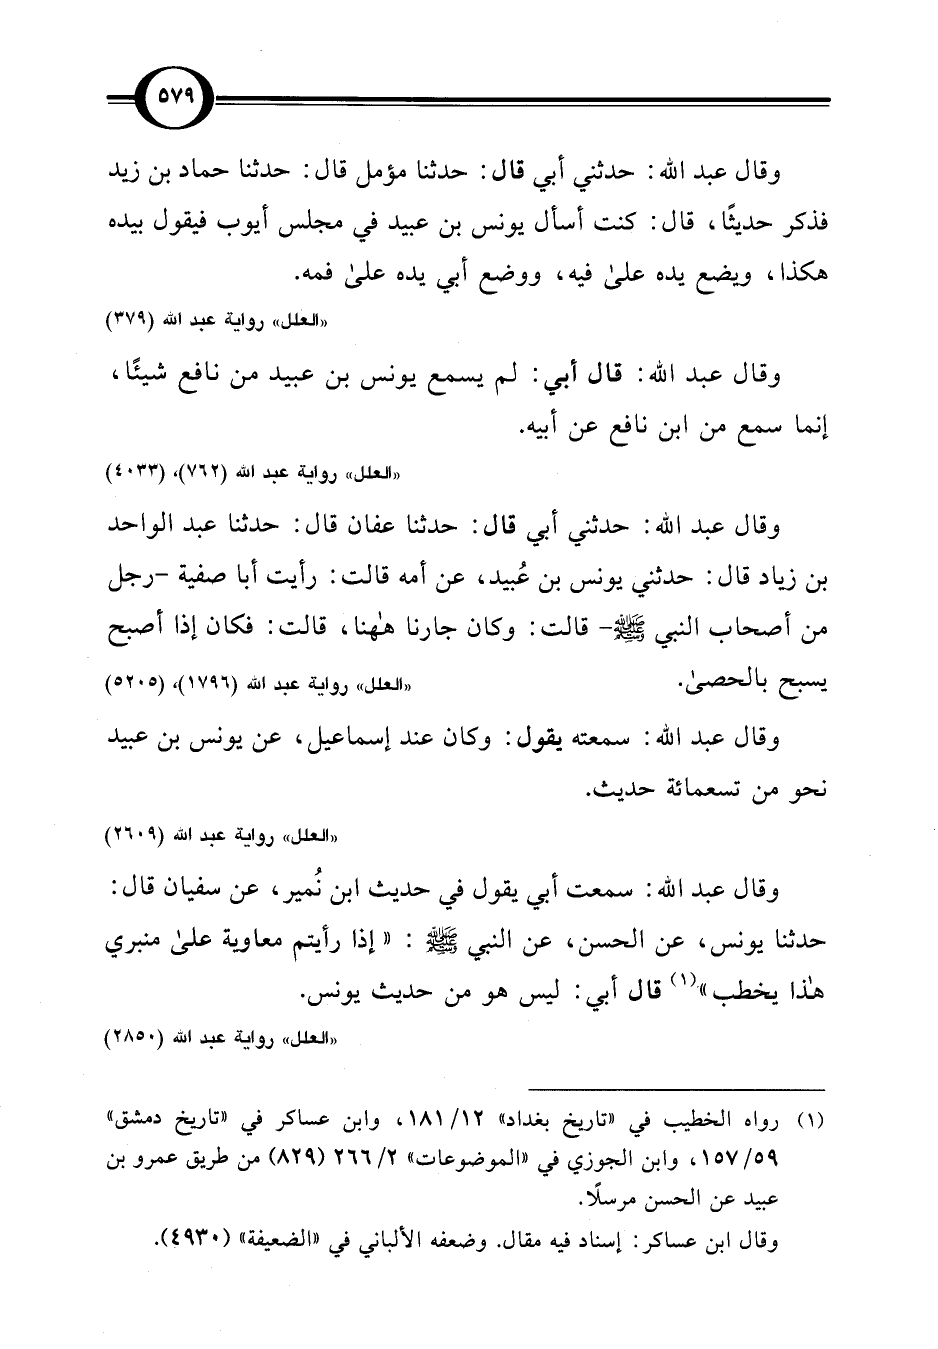 ٥٧٩
وقال عبد الله: حدثني أبي قال: حدثنا مؤمل قال: حدثنا حماد بن زيد
فذكر حديثًا، قال: كنت أسأل يونس بن عبيد في مجلس أيوب فيقول بيده
هكذا، ويضع يده علىٰ فيه، ووضع أبي يده علىٰ فمه.
«العلل» رواية عبد الله (٣٧٩)
وقال عبد الله: قال أبي: لم يسمع يونس بن عبيد من نافع شيئًا،
إنما سمع من ابن نافع عن أبيه.
«العلل» رواية عبد الله (٧٦٢)، (٤٠٣٣)
وقال عبد الله: حدثني أبي قال: حدثنا عفان قال: حدثنا عبد الواحد
بن زياد قال: حدثني يونس بن عُبيد، عن أمه قالت: رأيت أبا صفية -رجل
من أصحاب النبي ﷺ- قالت: وكان جارنا هٰهنا، قالت: فكان إذا أصبح
يسبح بالحصىٰ. «العلل» رواية عبد الله (١٧٩٦)، (٥٢٠٥)
وقال عبد الله: سمعته يقول: وكان عند إسماعيل، عن يونس بن عبيد
نحو من تسعمائة حديث.
«العلل» رواية عبد الله (٢٦٠٩)
وقال عبد الله: سمعت أبي يقول في حديث ابن نُمير، عن سفيان قال:
حدثنا يونس، عن الحسن، عن النبي ﷺ : « إذا رأيتم معاوية علىٰ منبري
هٰذا يخطب»(١) قال أبي: ليس هو من حديث يونس.
«العلل» رواية عبد الله (٢٨٥٠)
(١) رواه الخطيب في «تاريخ بغداد» ١٢/ ١٨١، وابن عساكر في «تاريخ دمشق»
٥٩/ ١٥٧، وابن الجوزي في «الموضوعات» ٢/ ٢٦٦ (٨٢٩) من طريق عمرو بن
عبيد عن الحسن مرسلًا.
وقال ابن عساكر: إسناد فيه مقال. وضعفه الألباني في «الضعيفة» (٤٩٣٠).